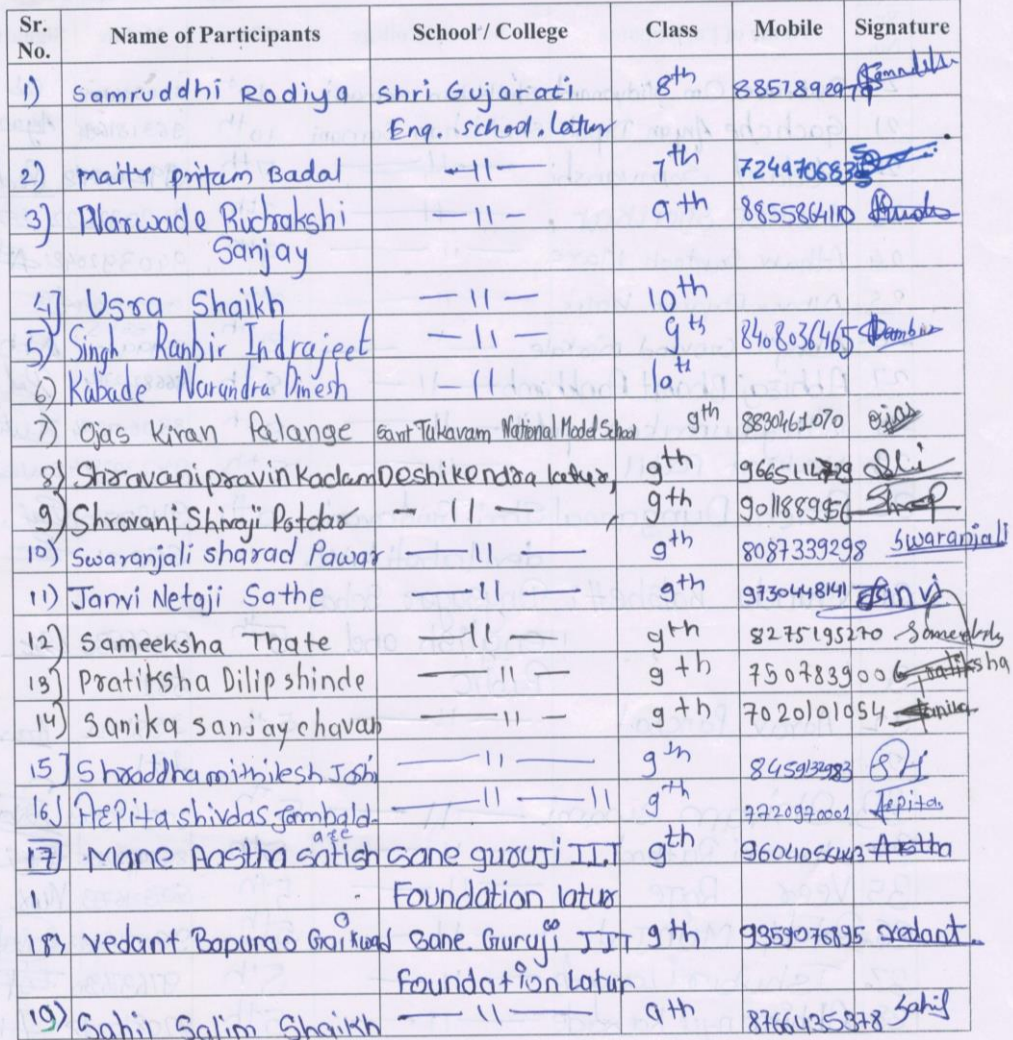 Sr. No. Name of Participants School / College Class Mobile Signature
1) Samruddhi Rodiya Shri Gujarati 8th
Eng. school. latur
2) Pritam Badal —11— 7th
3) Narwade Rudrakshi —11— 9th 8855864110
Sanjay
4) Usra Shaikh —11— 10th
5) Singh Ranbir Indrajeet —11— 9th 8408036465
6) Kabade Narundra Dinesh —11— 10th
7) Ojas Kiran Palange Sant Tukavam National Model School 9th 8830461070 ojas
8) Shravani pravin Kadam Deshikendra latur, 9th
9) Shravani Shivaji Potdar —11— 9th
10) Swaranjali sharad Pawar —11— 9th 8087339298 Swaranjali
11) Janvi Netaji Sathe —11— 9th 9730448141 Janvi
12) Sameeksha Thate —11— 9th 8275195270
13) Pratiksha Dilip shinde —11— 9th 7507839006 Pratiksha
14) Sanika sanjay chavan —11— 9th 7020101054 Sanika
15) Shraddha mithilesh Joshi —11— 9th
16) Aepita shivdas —11—.11 9th 7720970002 Aepita
17) Mane Aastha satish sane guruji IIT 9th Aastha
Foundation latur
18) Vedant Bapurao Gaikwad Sane Guruji IIT 9th 9359076895 vedant.
Foundation Latur
19) Sahil Salim Shaikh —11— 9th 8766435378 Sahil